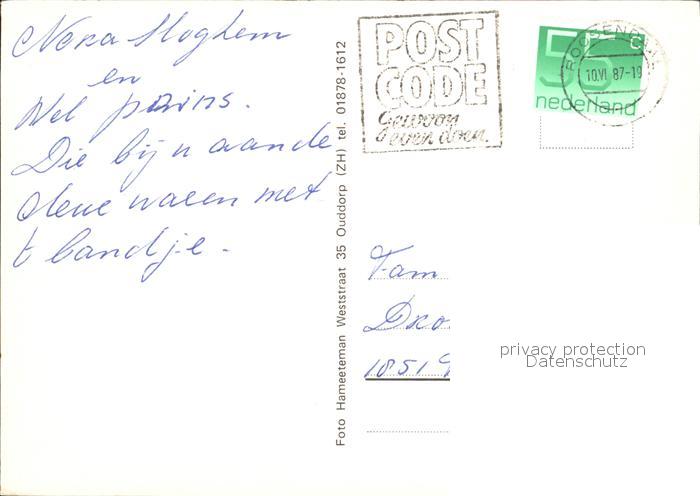 Nora Sloghem
en
Nel prins.
Die bij u aande
deur waren met
t bandje.
Foto Hameeteman Weststraat 35 Ouddorp (ZH) tel. 01878-1612
POST
CODE
gewoon
even doen.
55 c
nederland
10.VI.87-19
Fam
1851
privacy protection
Datenschutz